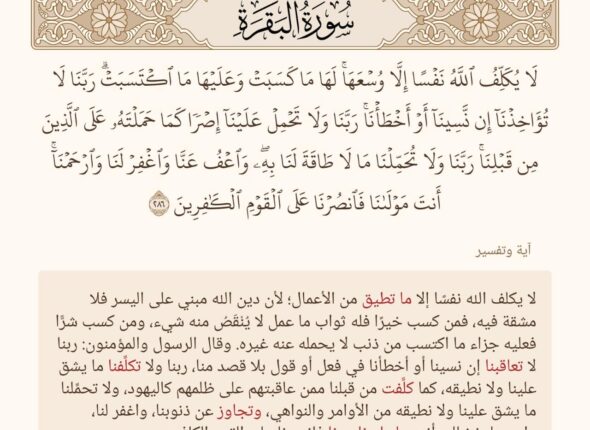 سُورَةُ البَقَرَةِ
لَا يُكَلِّفُ ٱللَّهُ نَفْسًا إِلَّا وُسْعَهَاۚ لَهَا مَا كَسَبَتْ وَعَلَيْهَا مَا ٱكْتَسَبَتْۗ رَبَّنَا لَا
تُؤَاخِذْنَآ إِن نَّسِينَآ أَوْ أَخْطَأْنَاۚ رَبَّنَا وَلَا تَحْمِلْ عَلَيْنَآ إِصْرًا كَمَا حَمَلْتَهُۥ عَلَى ٱلَّذِينَ
مِن قَبْلِنَاۚ رَبَّنَا وَلَا تُحَمِّلْنَا مَا لَا طَاقَةَ لَنَا بِهِۦۖ وَٱعْفُ عَنَّا وَٱغْفِرْ لَنَا وَٱرْحَمْنَآۚ
أَنتَ مَوْلَىٰنَا فَٱنصُرْنَا عَلَى ٱلْقَوْمِ ٱلْكَٰفِرِينَ ٢٨٦
آية وتفسير
لا يكلف الله نفسًا إلا ما تطيق من الأعمال؛ لأن دين الله مبني على اليسر فلا
مشقة فيه، فمن كسب خيرًا فله ثواب ما عمل لا يُنْقَصُ منه شيء، ومن كسب شرًّا
فعليه جزاء ما اكتسب من ذنب لا يحمله عنه غيره. وقال الرسول والمؤمنون: ربنا
لا تعاقبنا إن نسينا أو أخطأنا في فعل أو قول بلا قصد منا، ربنا ولا تكلِّفنا ما يشق
علينا ولا نطيقه، كما كلَّفت من قبلنا ممن عاقبتهم على ظلمهم كاليهود، ولا تحمِّلنا
ما يشق علينا ولا نطيقه من الأوامر والنواهي، وتجاوز عن ذنوبنا، واغفر لنا،